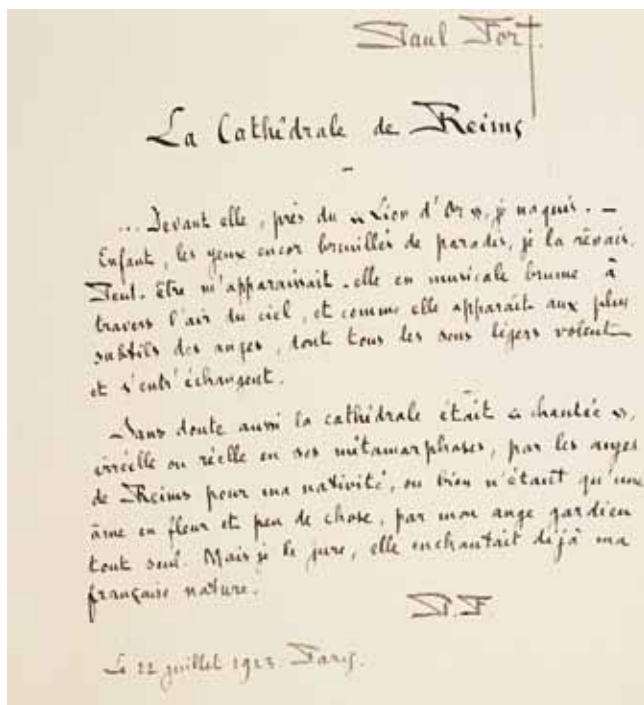 Paul Fort.
La Cathédrale de Reims
-
... Devant elle, près du « Lion d'Or », je naquis. —
Enfant, les yeux encor brouillés de paradis, je la rêvais.
Peut-être m'apparaissait-elle en musicale brume à
travers l'air du ciel, et comme elle apparaît aux plus
subtils des anges, dont tous les sens légers volent
et s'entr'échangent.
Sans doute aussi la cathédrale était « chantée »,
irréelle ou réelle en ses métamorphoses, par les anges
de Reims pour ma nativité, ou bien n'étant qu'une
âme en fleur et peu de chose, par mon ange gardien
tout seul. Mais je le jure, elle enchantait déjà ma
française nature.
P. F.
Le 22 juillet 1923. Paris.